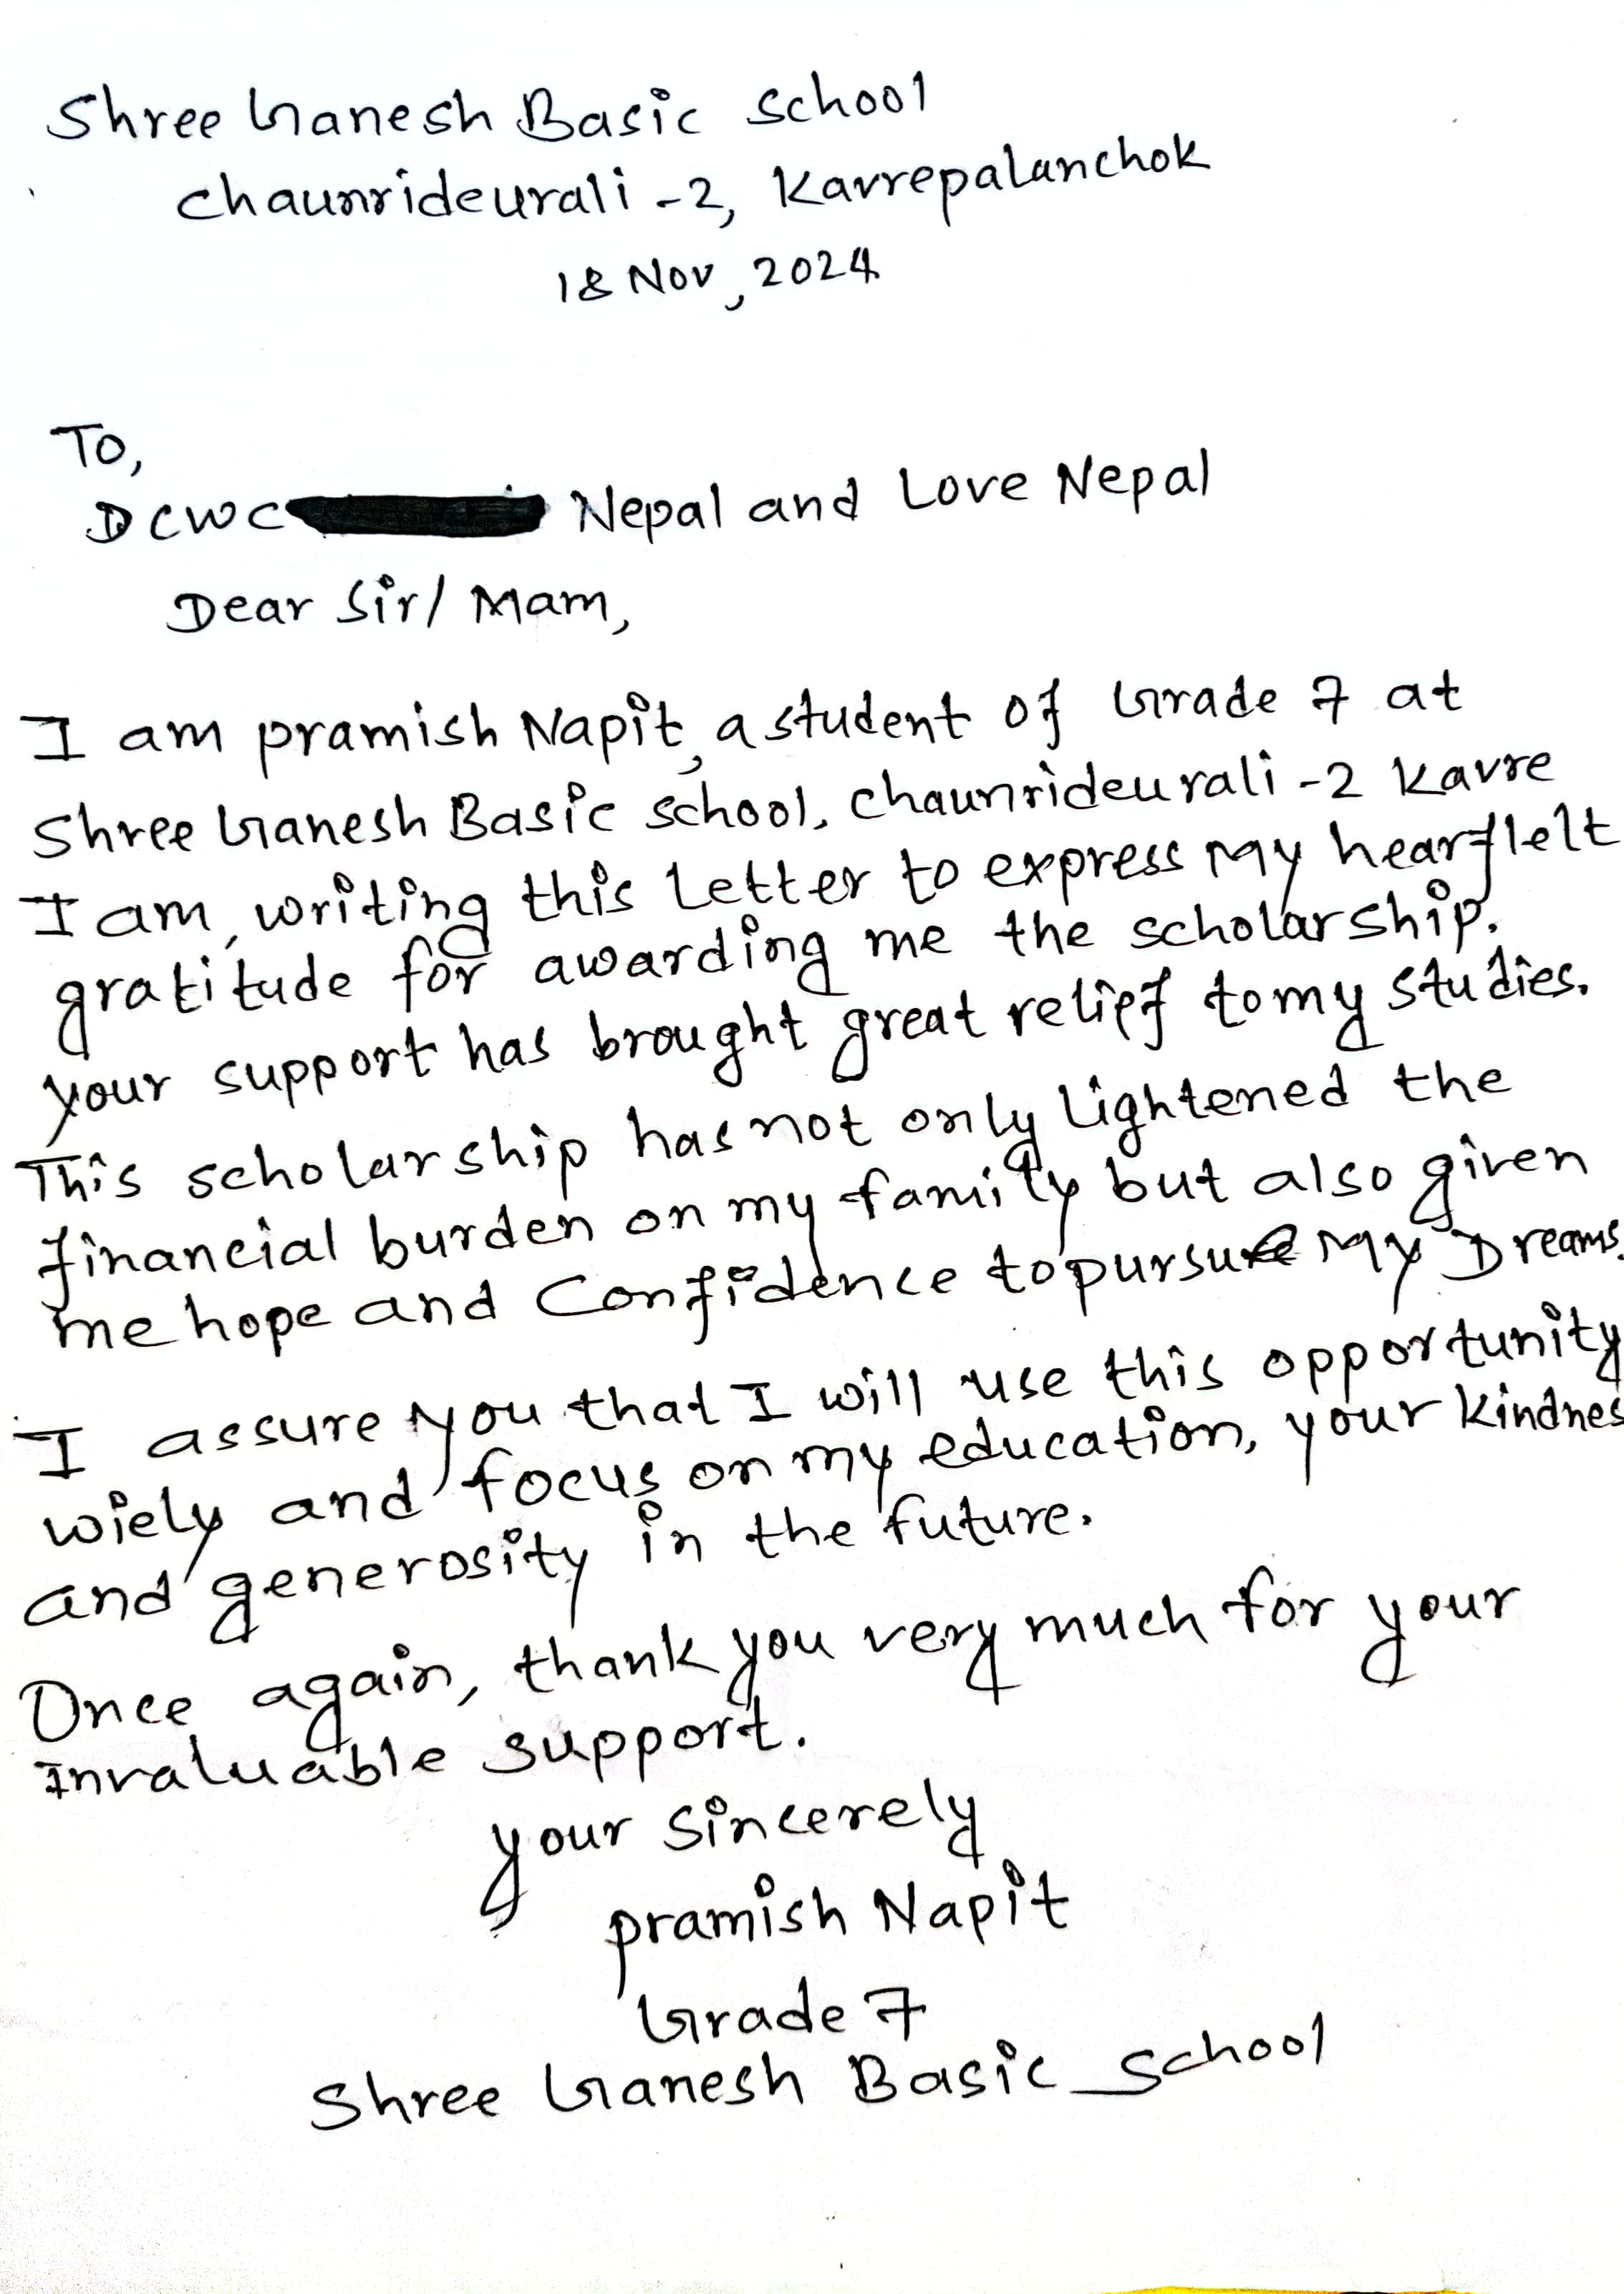 Shree Ganesh Basic school
Chaunrideurali -2, Kavrepalanchok
18 Nov, 2024
To,
DCWC Nepal and Love Nepal
Dear Sir/ Mam,
I am pramish Napit, a student of Grade 7 at
Shree Ganesh Basic school, Chaunrideurali -2 Kavre
I am, writing this letter to express My heartflelt
gratitude for awarding me the scholarship.
your support has brought great relief to my studies.
This scholarship has not only lightened the
financial burden on my family but also given
me hope and Confidence to pursue My Dreams.
I assure you that I will use this opportunity
wiely and focus on my education, your kindnes
and generosity in the future.
Once again, thank you very much for your
invaluable support.
your sincerely
pramish Napit
Grade 7
Shree Ganesh Basic school